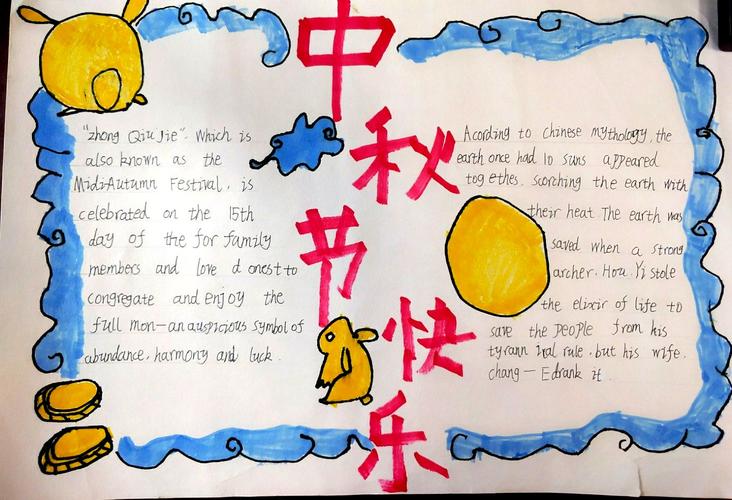 "zhong Qiu Jie". Which is
also known as the
Midi-Autumn Festival, is
celebrated on the 15th
day of the for family
members and love d onest to
congregate and enjoy the
full mon—an auspicious symbol of
abundance, harmony and luck.
中
秋
节
快
乐
Acording to chinese mythology, the
earth once had 10 suns appeared
togethes. scorching the earth with
their heat. The earth was
saved when a strong
archer. Hou. Yi stole
the elixir of life to
save the people from his
tyrann ical rule, but his wife.
chang—Edrank it.